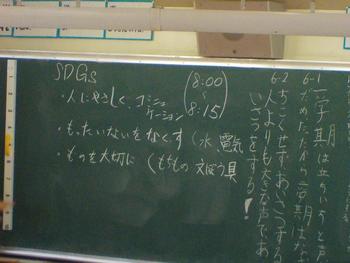 SDGs
・人にやさしく、コミュニ
ケーション
(8:00
〜
8:15)
・もったいないをなくす(水、電気
・ものを大切に(もちもの 文ぼう具
6-1
一学期は
6-2
ちこくせずあいさつする
人よりも大きな声であ
いさつをする!